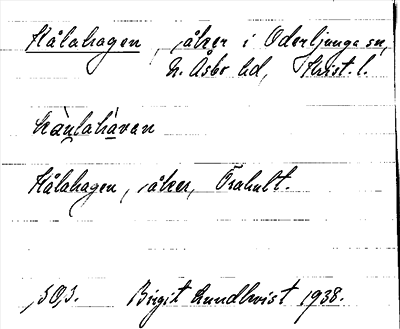 Kålahagen, åker i Oderljunga sn,
N. Åsbo hd, Krist. l.
kàulahàvan
Kålahagen, åker, Örahult.
Birgit Lundkvist 1938.